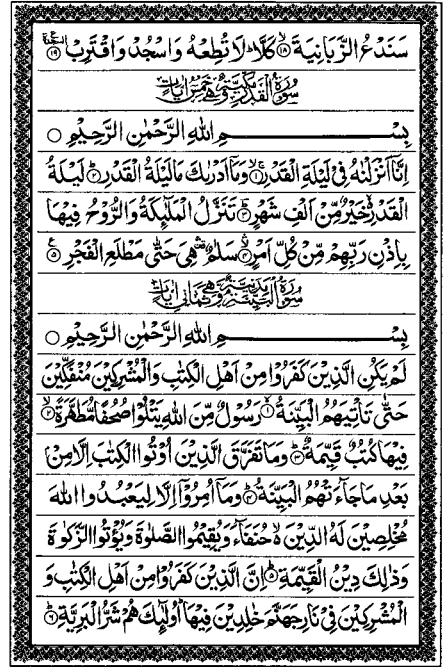 سَنَدْعُ الزَّبَانِيَةَ ﴿۱۸﴾ كَلَّا ؕ لَا تُطِعْهُ وَاسْجُدْ وَاقْتَرِبْ ﴿۱۹﴾
سُوْرَةُ الْقَدْرِ مَكِّيَّةٌ وَّهِيَ خَمْسُ اٰيَاتٍ
بِسْمِ اللهِ الرَّحْمٰنِ الرَّحِيْمِ
اِنَّاۤ اَنْزَلْنٰهُ فِيْ لَيْلَةِ الْقَدْرِ ﴿۱﴾ وَمَاۤ اَدْرٰىكَ مَا لَيْلَةُ الْقَدْرِ ﴿۲﴾ لَيْلَةُ
الْقَدْرِ خَيْرٌ مِّنْ اَلْفِ شَهْرٍ ﴿۳﴾ تَنَزَّلُ الْمَلٰٓئِكَةُ وَالرُّوْحُ فِيْهَا
بِاِذْنِ رَبِّهِمْ مِّنْ كُلِّ اَمْرٍ ﴿۴﴾ سَلٰمٌ هِيَ حَتّٰى مَطْلَعِ الْفَجْرِ ﴿۵﴾
سُوْرَةُ الْبَيِّنَةِ مَدَنِيَّةٌ وَّهِيَ ثَمَانِي اٰيَاتٍ
بِسْمِ اللهِ الرَّحْمٰنِ الرَّحِيْمِ
لَمْ يَكُنِ الَّذِيْنَ كَفَرُوْا مِنْ اَهْلِ الْكِتٰبِ وَالْمُشْرِكِيْنَ مُنْفَكِّيْنَ
حَتّٰى تَاْتِيَهُمُ الْبَيِّنَةُ ﴿۱﴾ رَسُوْلٌ مِّنَ اللهِ يَتْلُوْا صُحُفًا مُّطَهَّرَةً ﴿۲﴾
فِيْهَا كُتُبٌ قَيِّمَةٌ ﴿۳﴾ وَمَا تَفَرَّقَ الَّذِيْنَ اُوْتُوا الْكِتٰبَ اِلَّا مِنْۢ
بَعْدِ مَا جَآءَتْهُمُ الْبَيِّنَةُ ﴿۴﴾ وَمَاۤ اُمِرُوْۤا اِلَّا لِيَعْبُدُوا اللهَ
مُخْلِصِيْنَ لَهُ الدِّيْنَ ۙ حُنَفَآءَ وَيُقِيْمُوا الصَّلٰوةَ وَيُؤْتُوا الزَّكٰوةَ
وَذٰلِكَ دِيْنُ الْقَيِّمَةِ ﴿۵﴾ اِنَّ الَّذِيْنَ كَفَرُوْا مِنْ اَهْلِ الْكِتٰبِ وَ
الْمُشْرِكِيْنَ فِيْ نَارِ جَهَنَّمَ خٰلِدِيْنَ فِيْهَا ؕ اُولٰٓئِكَ هُمْ شَرُّ الْبَرِيَّةِ ﴿۶﴾